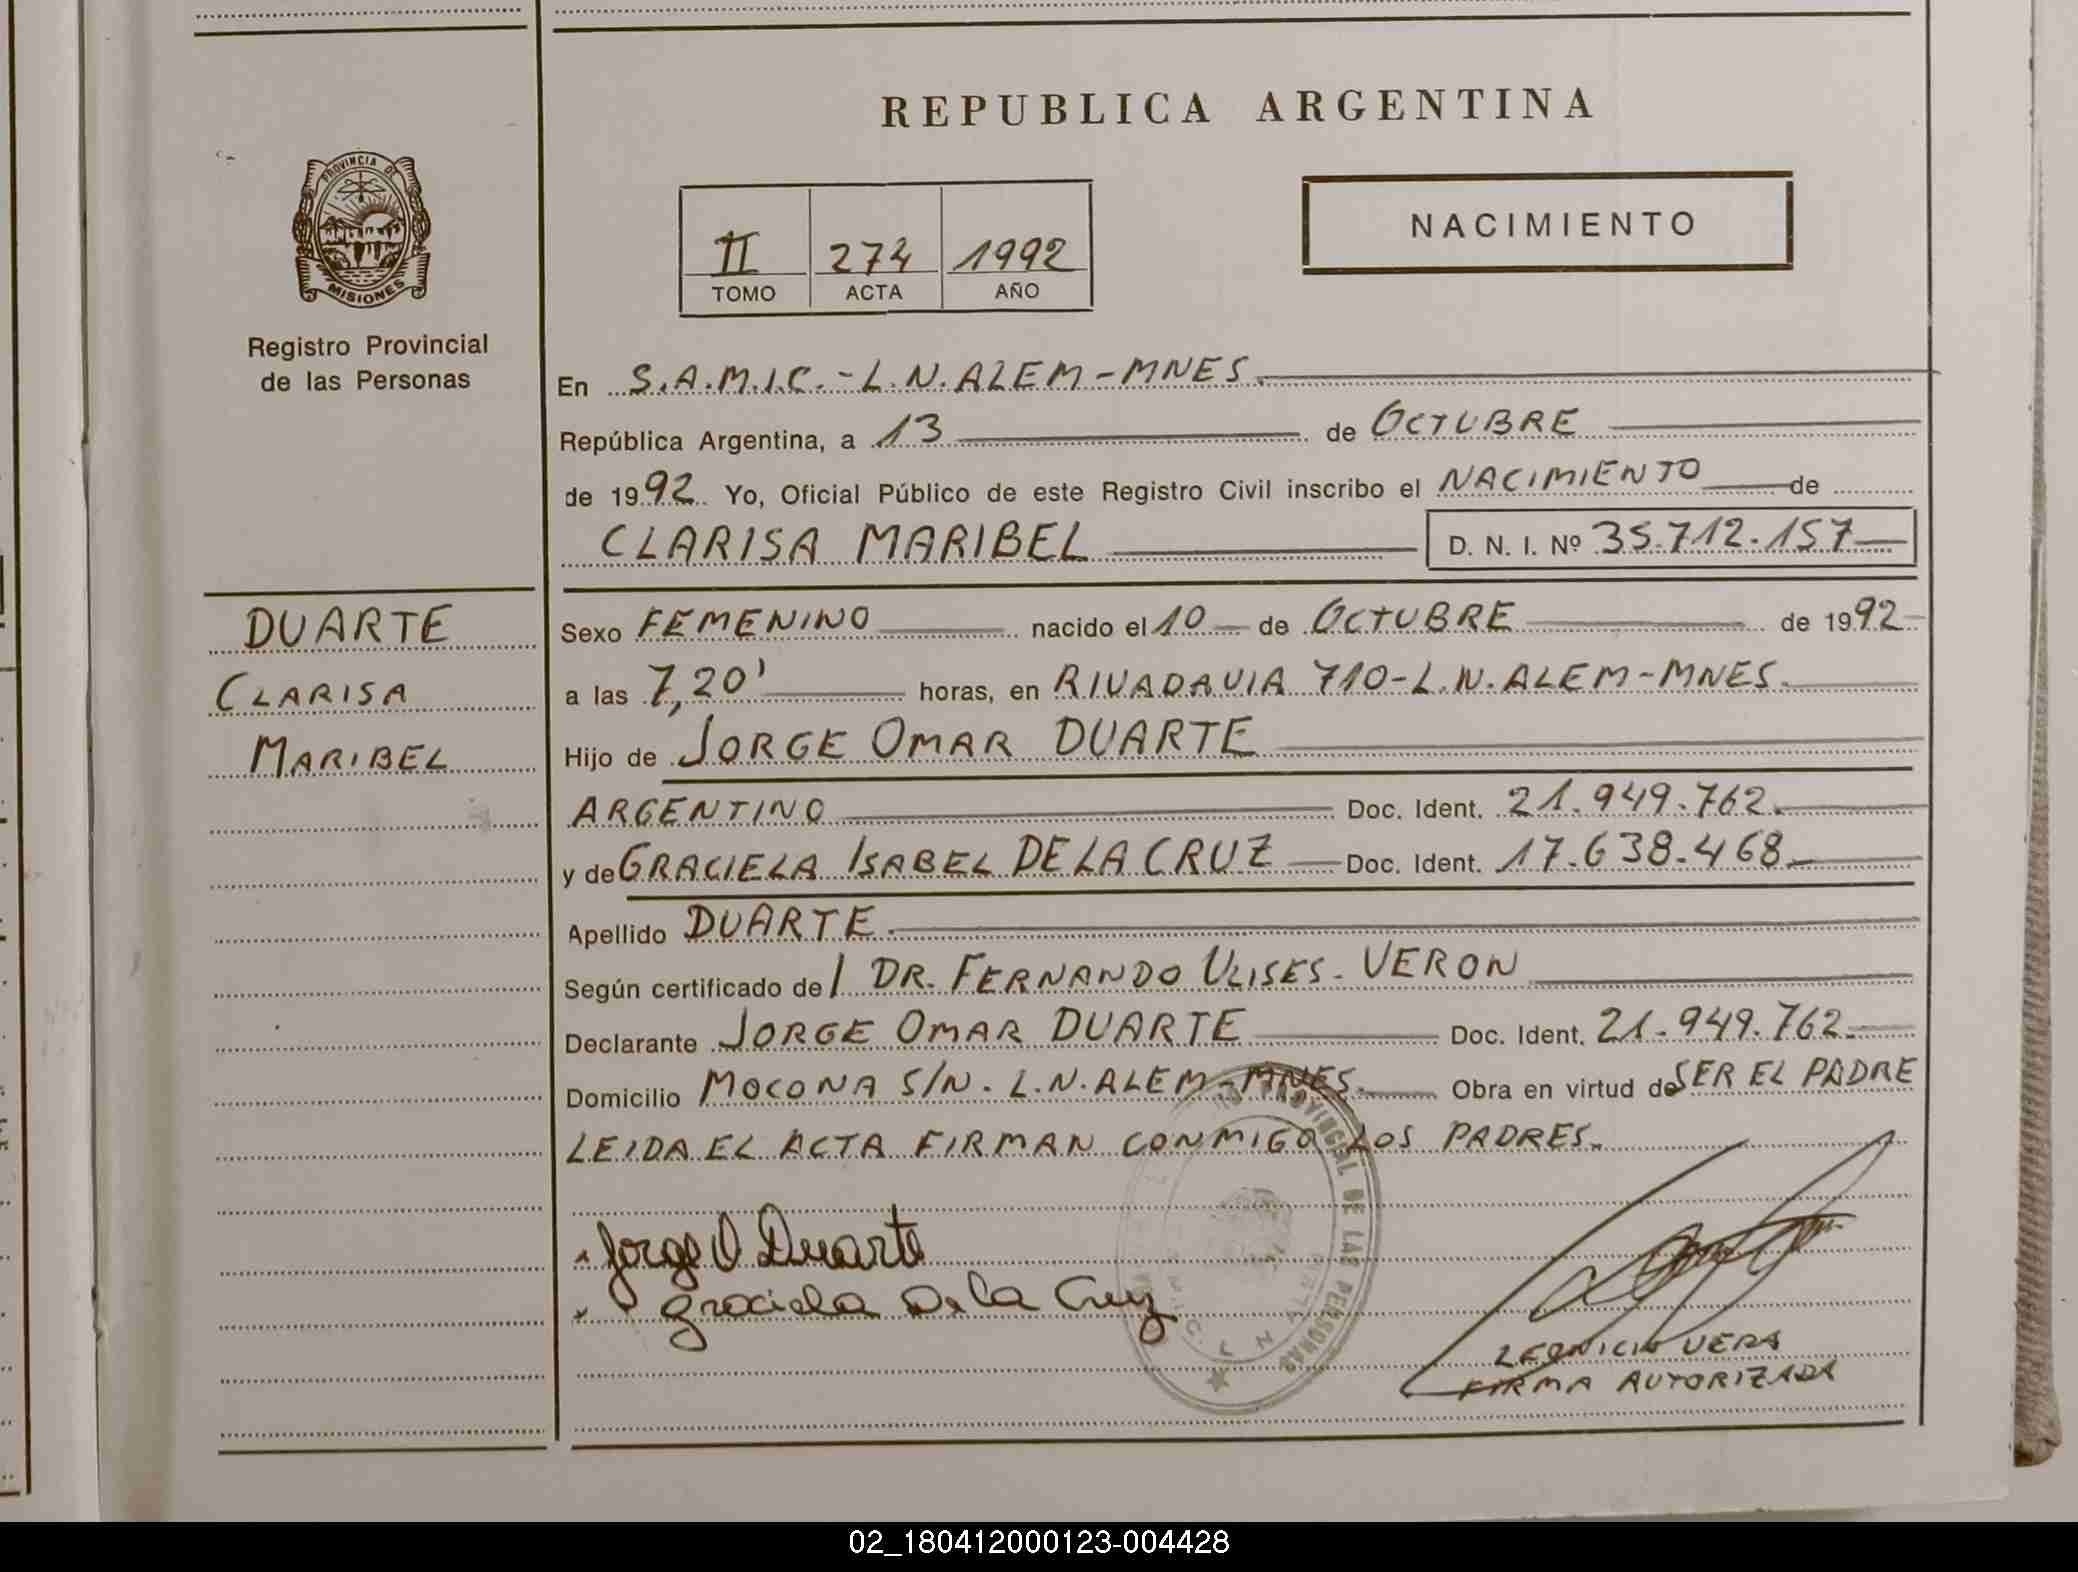 REPUBLICA ARGENTINA
PROVINCIA DE
MISIONES
Registro Provincial
de las Personas
II 274 1992
TOMO ACTA AÑO
NACIMIENTO
En S.A.M.I.C.-L.N.ALEM-MNES.
República Argentina, a 13 de OCTUBRE
de 1992 Yo, Oficial Público de este Registro Civil inscribo el NACIMIENTO de
CLARISA MARIBEL D. N. I. Nº 35.712.157
DUARTE
CLARISA
MARIBEL
Sexo FEMENINO nacido el 10 de OCTUBRE de 1992
a las 7,20' horas, en RIVADAVIA 710-L.N.ALEM-MNES.
Hijo de JORGE OMAR DUARTE
ARGENTINO Doc. Ident. 21.949.762.
y de GRACIELA ISABEL DE LA CRUZ Doc. Ident. 17.638.468.
Apellido DUARTE.
Según certificado del DR. FERNANDO ULISES-VERON
Declarante JORGE OMAR DUARTE Doc. Ident. 21.949.762.
Domicilio MOCONA S/N. L.N.ALEM-MNES. Obra en virtud de SER EL PADRE
LEIDA EL ACTA FIRMAN CONMIGO LOS PADRES.
Jorge O Duarte
Graciela De la Cruz
PROVINCIAL DE LAS PERSONAS
LEONICIO VERA
FIRMA AUTORIZADA
02_180412000123-004428